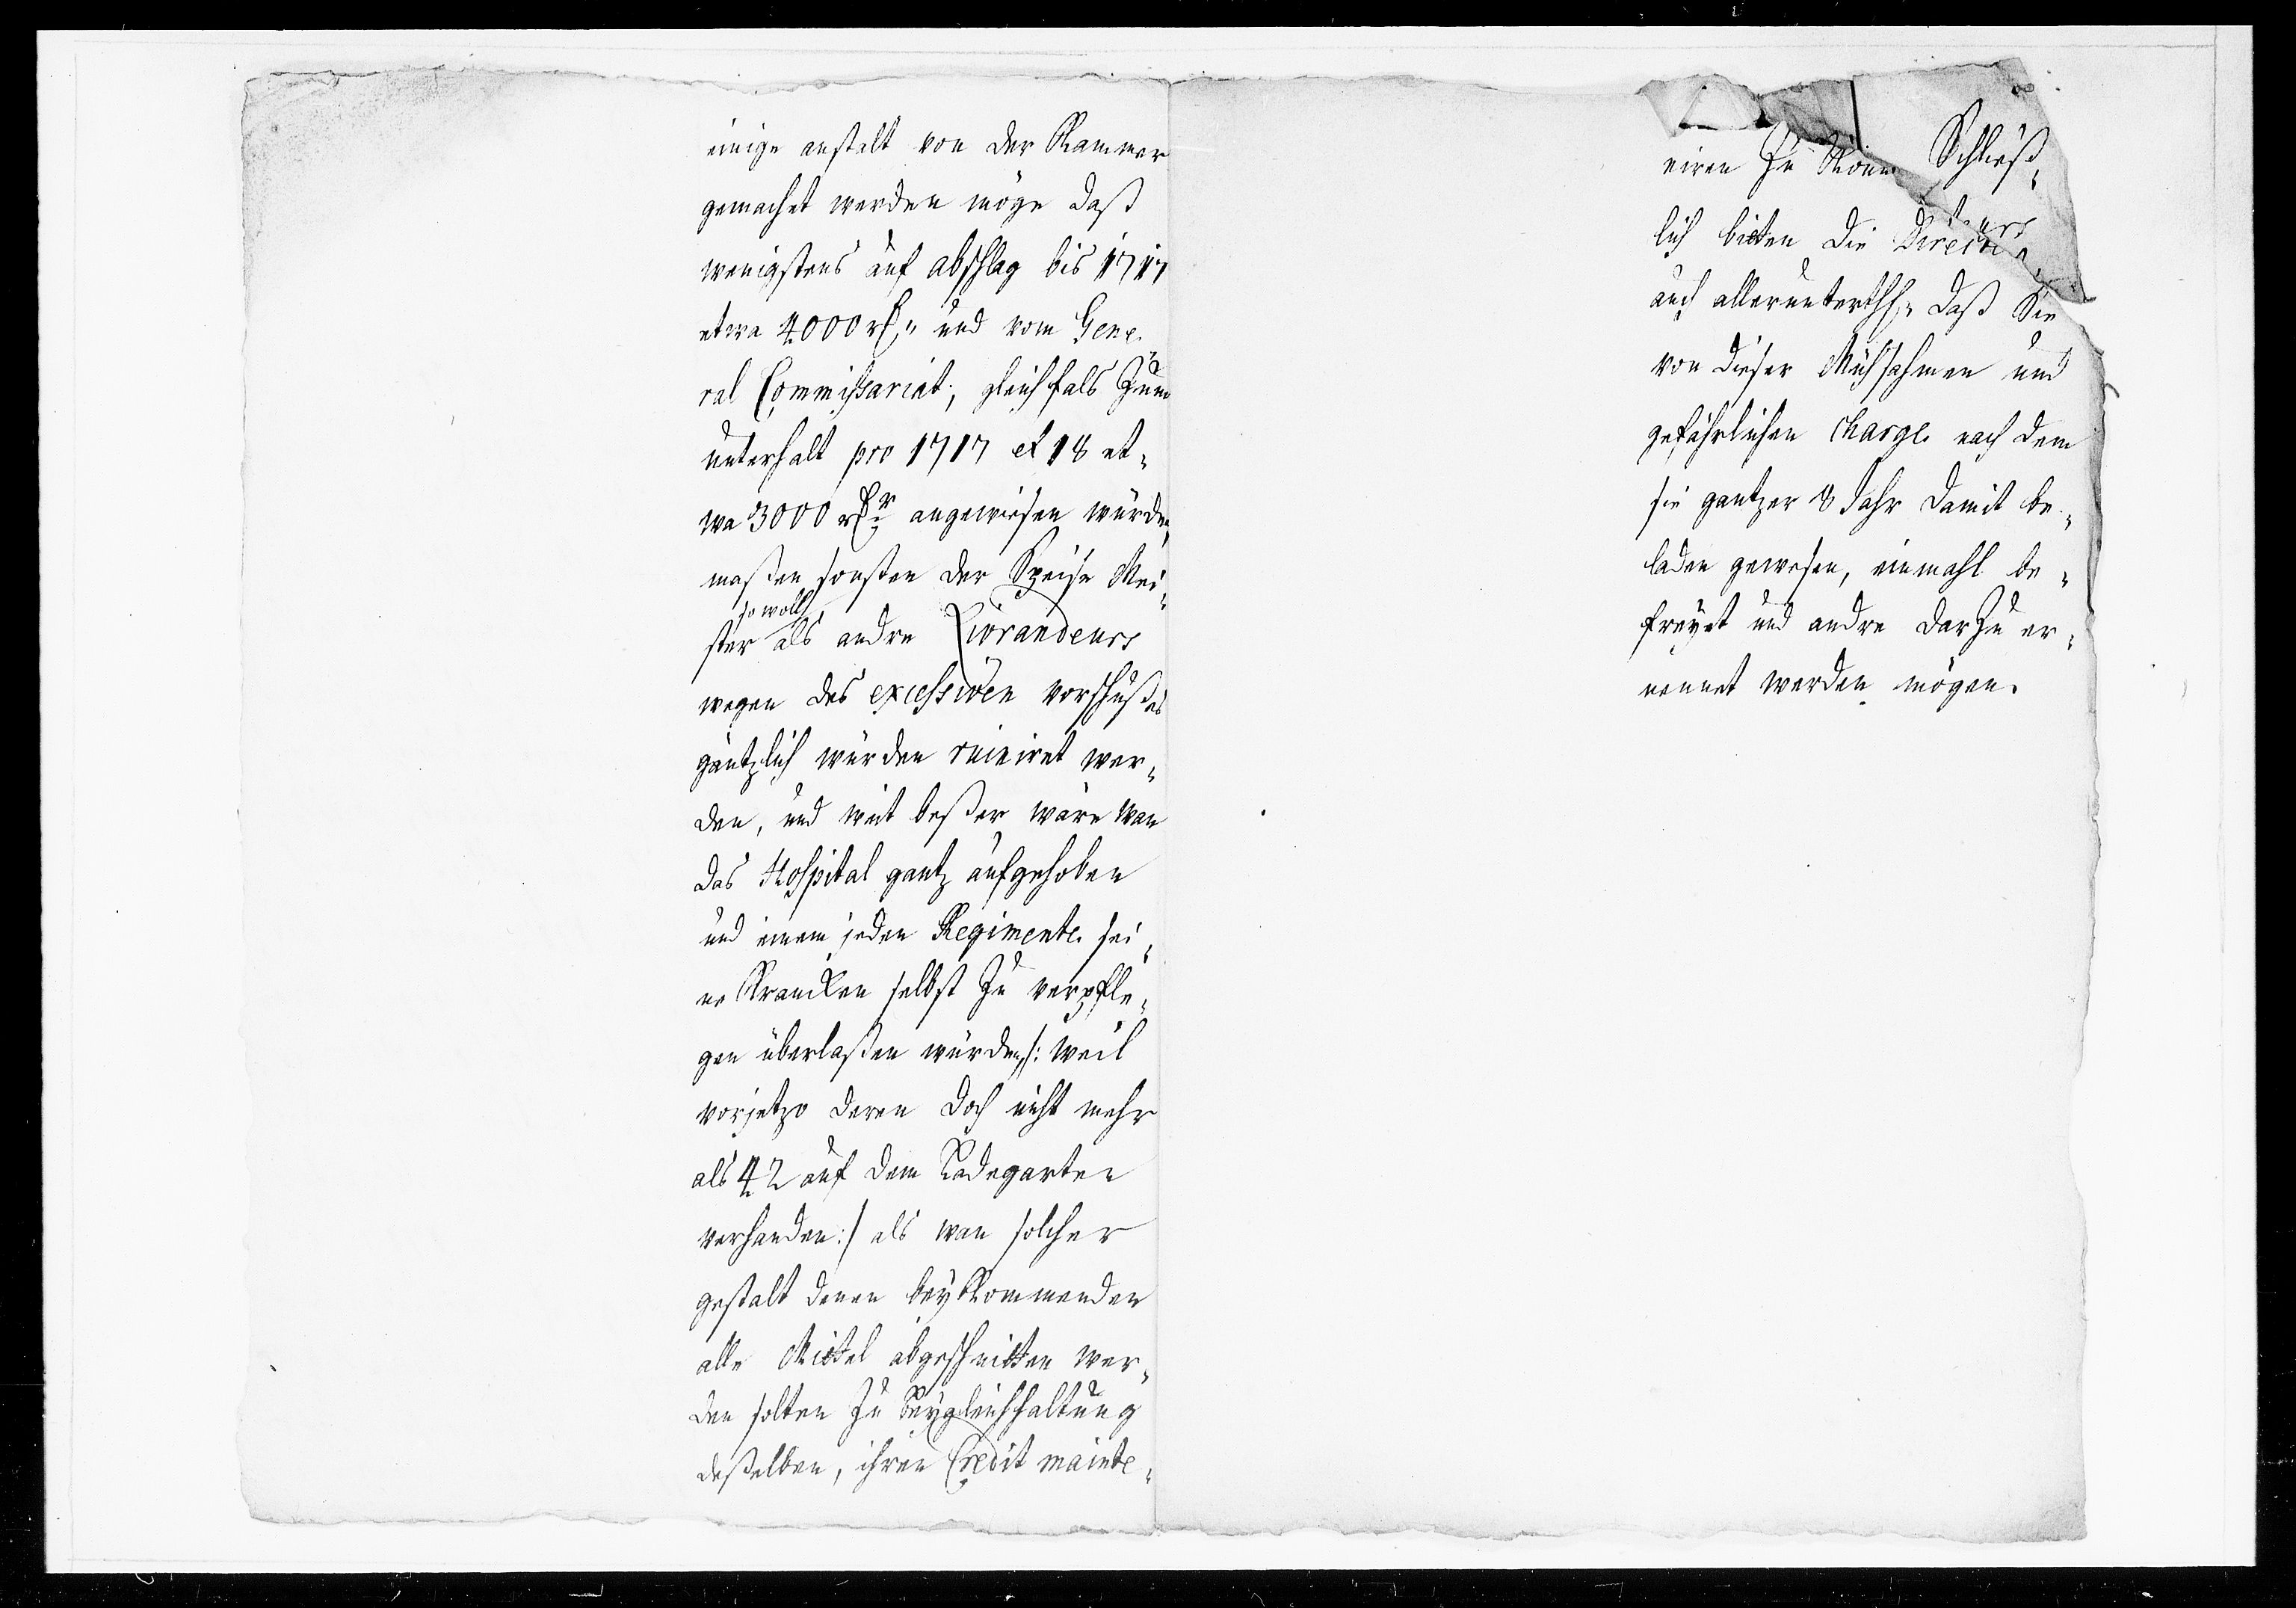 einige anstalt von der Kammer
gemachet werden möge daß
wenigstens auf abschlag bis 1717
etwa 4000 rth, und vom Gene-
ral Commissariat, gleichfals Zum
unterhalt pro 1717 et 18 et-
wa 3000 rthr angewiesen würden,
maßen sonsten der Speise Mei-
ster so wohl als andre Livrandeurs
wegen des excessiven vorschußes
gäntzlich würden ruiniret wer-
den, und weit beßer wäre wan
das Hospital gantz aufgehoben
und einem jeden Regimente sei-
ne Krancken selbst Zu verpfle-
gen überlaßen würden /: weil
vorjetzo deren doch nicht mehr
als 42 auf dem Ladegarten
verhanden :/ als wan solcher
gestalt denen beyKommenden
alle Mittel abgeschnitten wer-
den solten Zu
deßelben, ihren Credit mainte-
niren Zu Könn Schließ-
lich bitten die Directeurs
auch allerunterth. daß Sie
von dieser Mühsahmen und
gefährlichen charge nach dem
sie gantzer 8 Jahr damit be-
laden gewesen, einmahl be-
freyet und andre dar Zu er-
nennet werden mögen.